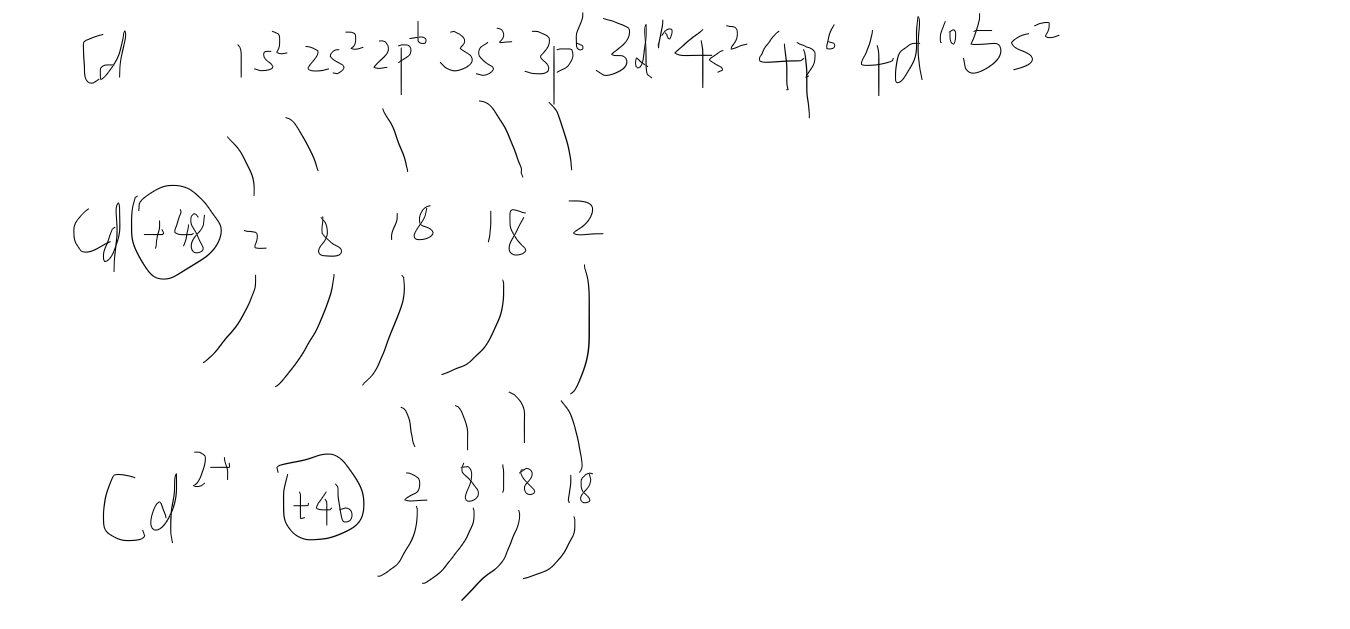 Cd 1s² 2s² 2p⁶ 3s² 3p⁶ 3d¹⁰ 4s² 4p⁶ 4d¹⁰ 5s²
Cd +48 2 8 18 18 2
Cd²⁺ +46 2 8 18 18